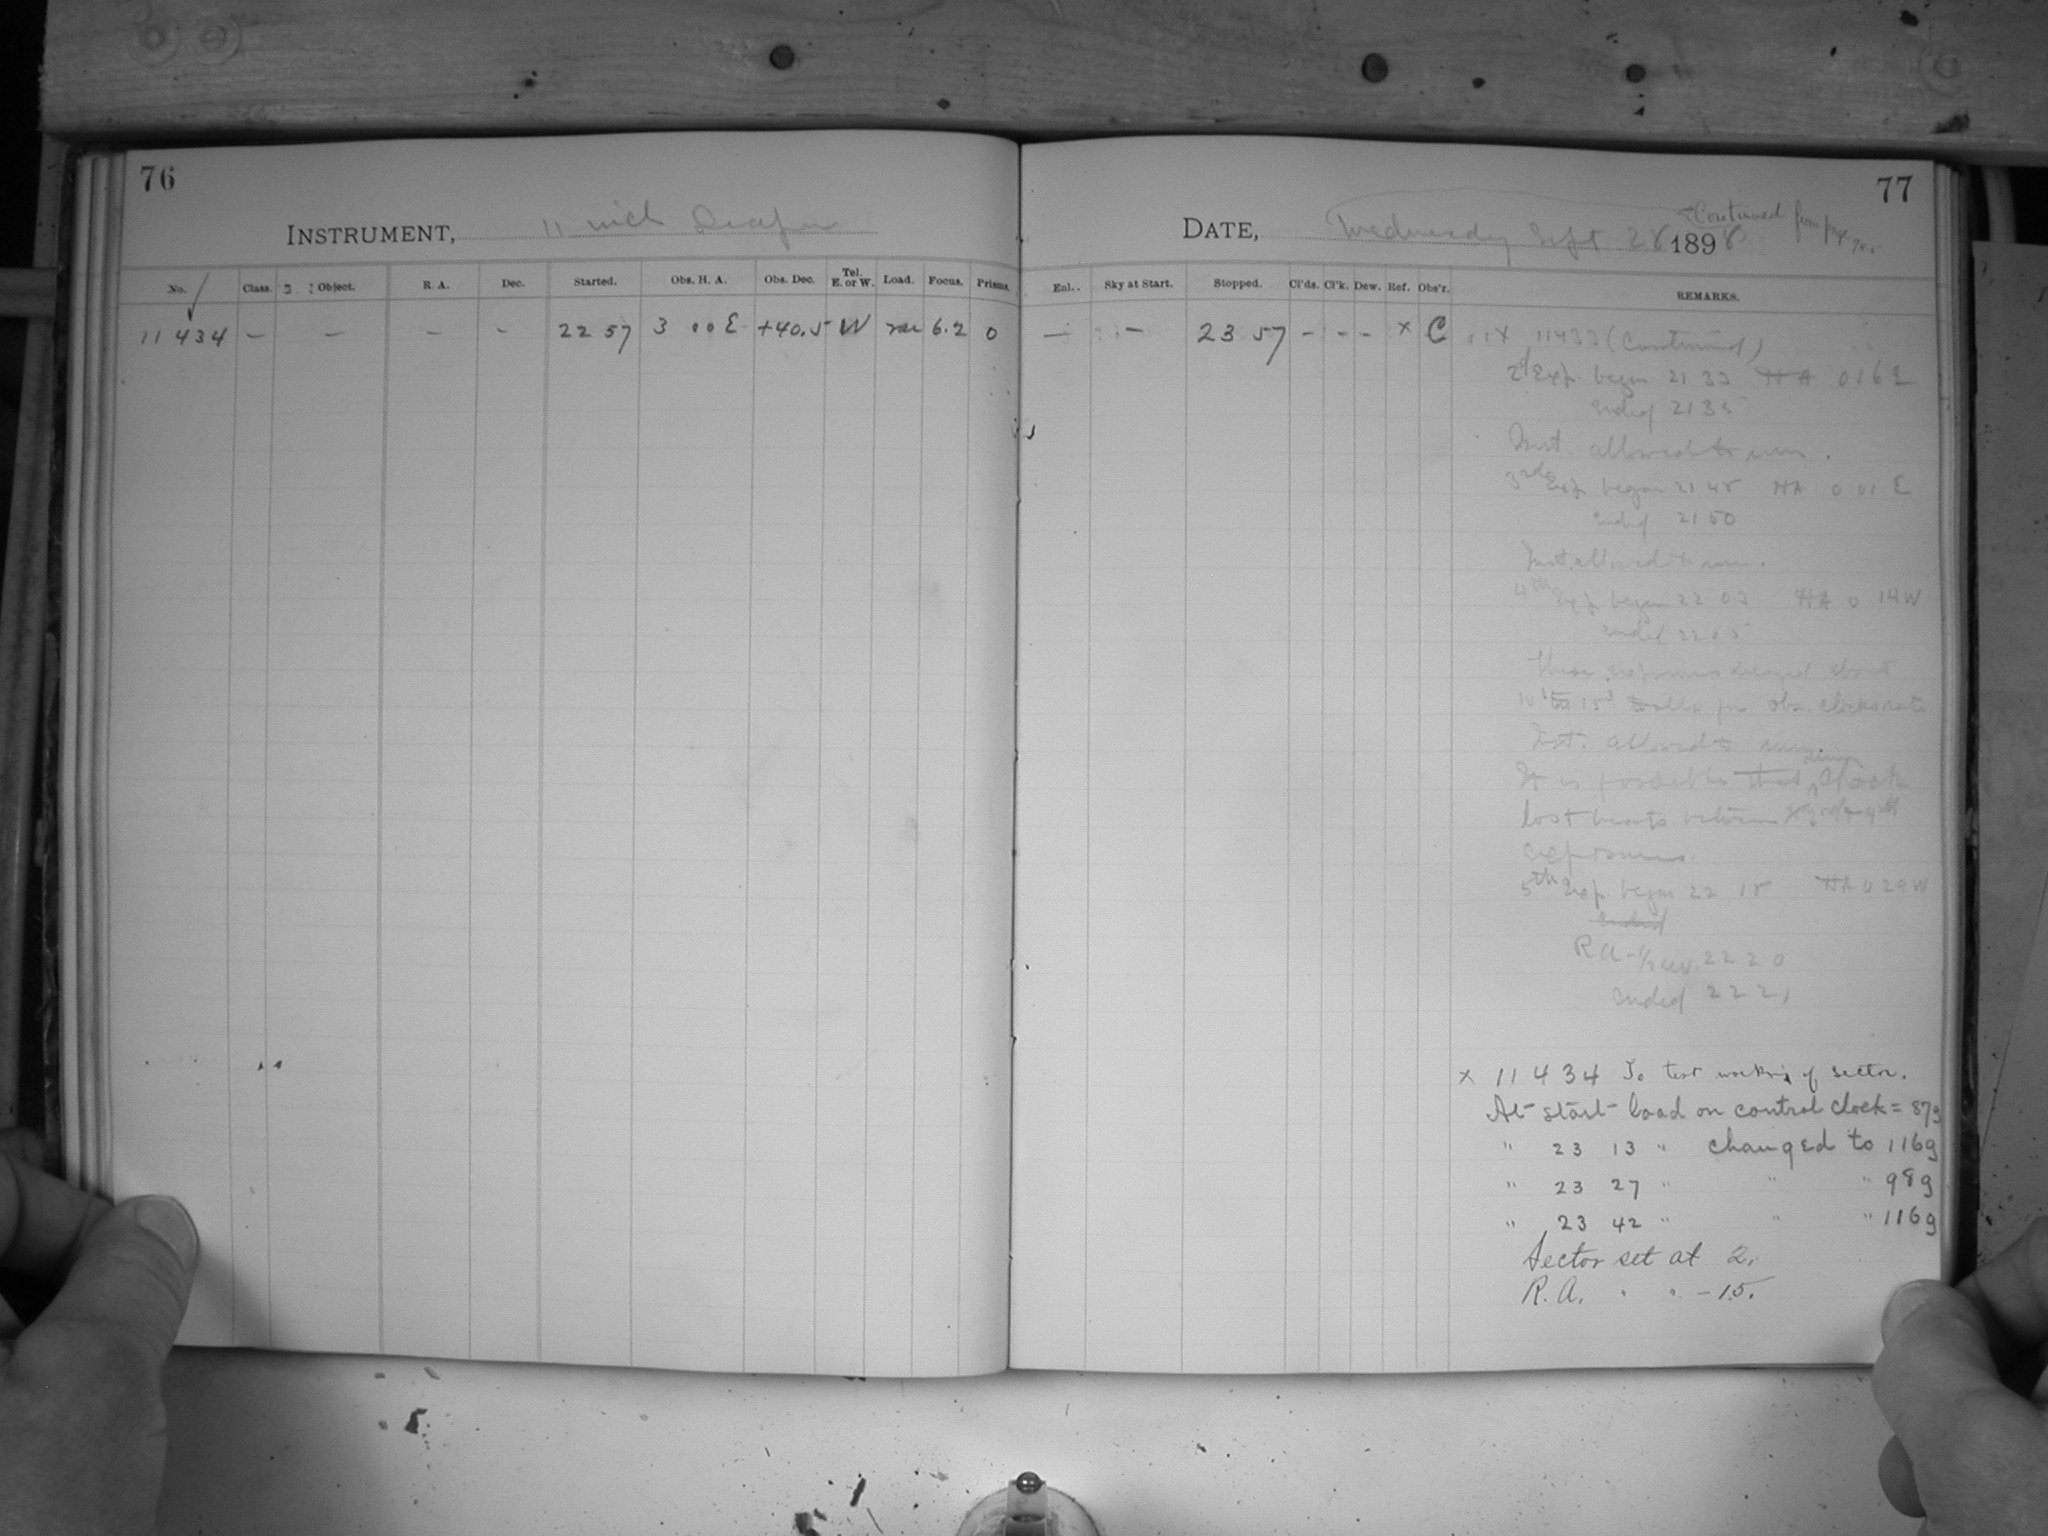 76
INSTRUMENT, 11 inch Draper
No. Class. Object. R. A. Dec. Started. Obs. H. A. Obs. Dec. Tel. E. or W. Load. Focus. Prisms.
11 434 — — — - 22 57 3 00 E +40.5 W 6.2 0
77
DATE, Wednesday Sept. 28 1898
Continued from page
Enl. Sky at Start. Stopped. Cl'ds. Cl'k. Dew. Ref. Obs'r. REMARKS.
— — 23 57 - - - x C
11433 (Continued)
2d Exp. began 21 33 HA 0 16 E
ended 2135
Inst. allowed to run.
3rd Exp. began 21 48 HA 0 01 E
ended 2150
Inst. allowed to run.
4th Exp. began 22 03 HA 0 14 W
ended 22 05
These exposures delayed about
10s to 15s to allow for obs. clock rate.
Inst. allowed to run.
It is possible that driving clock
lost beats between 3rd & 4th
exposures.
5th Exp. began 22 18 HA 0 29 W
ended
R A - 1/2 rev. 22 20
ended 22 21
x 11 434 To test working of sector.
At start load on control clock = 87g
" 23 13 " changed to 116g
" 23 27 " " " 98g
" 23 42 " " " 116g
Sector set at 2.
R. A. " " - 15.